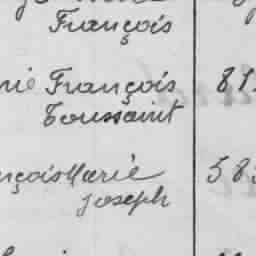 François
rie François 81
Toussaint
nçois Marie 583
Joseph